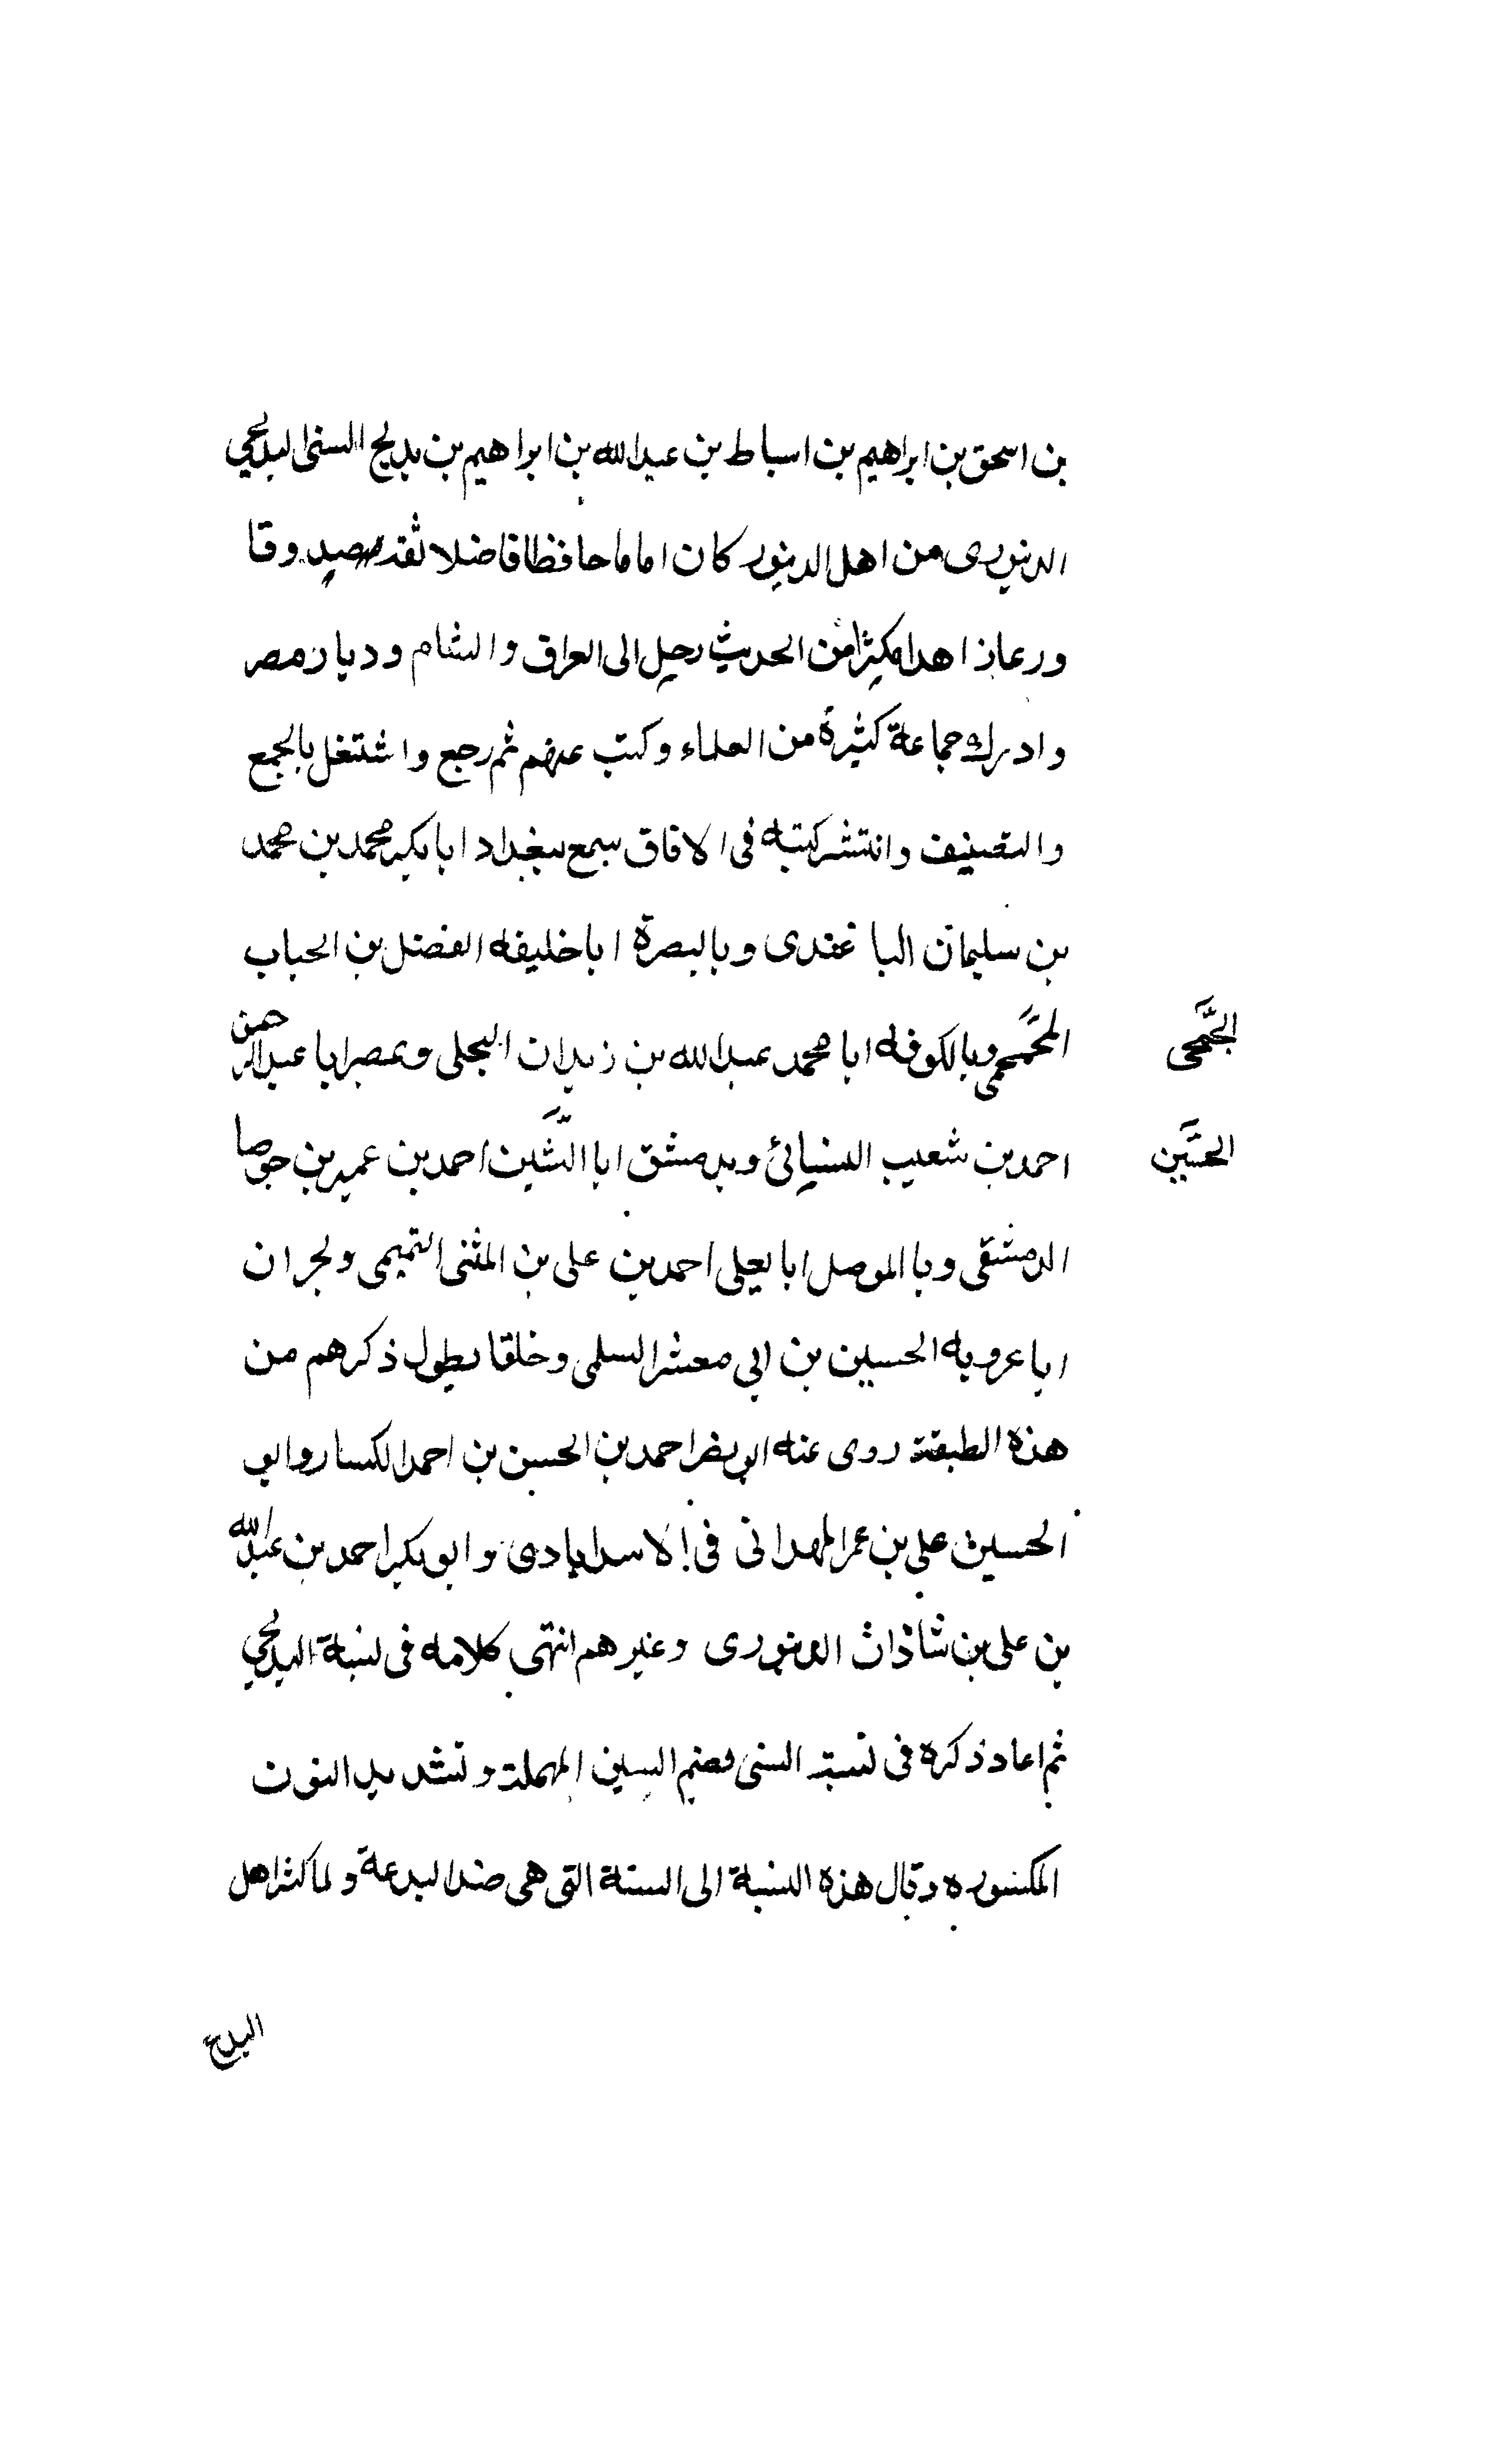 بن اسحق بن ابراهيم بن اسباط بن عبدالله بن ابراهيم بن بديح السنى البديحي
الدينورى من اهل الدينور كان اماما حافظا فاضلا ثقة صدوقا
ورعا زاهدا مكثرا من الحديث رحل الى العراق والشام وديار مصر
وادرك جماعة كثيرة من العلماء وكتب عنهم ثم رجع واشتغل بالجمع
والتصنيف وانتشر كتبه فى الافاق سمع ببغداد ابا بكر محمد بن محمد
بن سليمان الباغندى وبالبصرة ابا خليفه الفضل بن الحباب
المحمحى وبالكوفه ابا محمد عبدالله بن زيدان البجلى وبمصر ابا عبدالرحمن
الجُّمَحى
احمد بن شعيب النسائئ وبدمشق ابا الشَّين احمد بن عمير بن جوصا
الحسَين
الدمشقى وبا الموصل ابا يعلى احمد بن على بن المثنى التميمى وبحران
ابا عروبه الحسين بن ابى معشر السلمى وخلقا يطول ذكرهم من
هذه الطبقة روى عنه ابو نصر احمد بن الحسين بن احمد الكسار وابو
الحسين على بن عمر الهمدانى فى الاسدابادى وابو بكر احمد بن عبدالله
بن على بن شاذان الدينورى وغيرهم انتهى كلامه فى نسبة البديحي
ثم اعاد ذكره فى نسبة السنى فضم السين المهملة وتشديد النون
المكسوره وقال هذه النسبة الى السنة التى هى ضد البدعة ولما كثر اهل
البدع